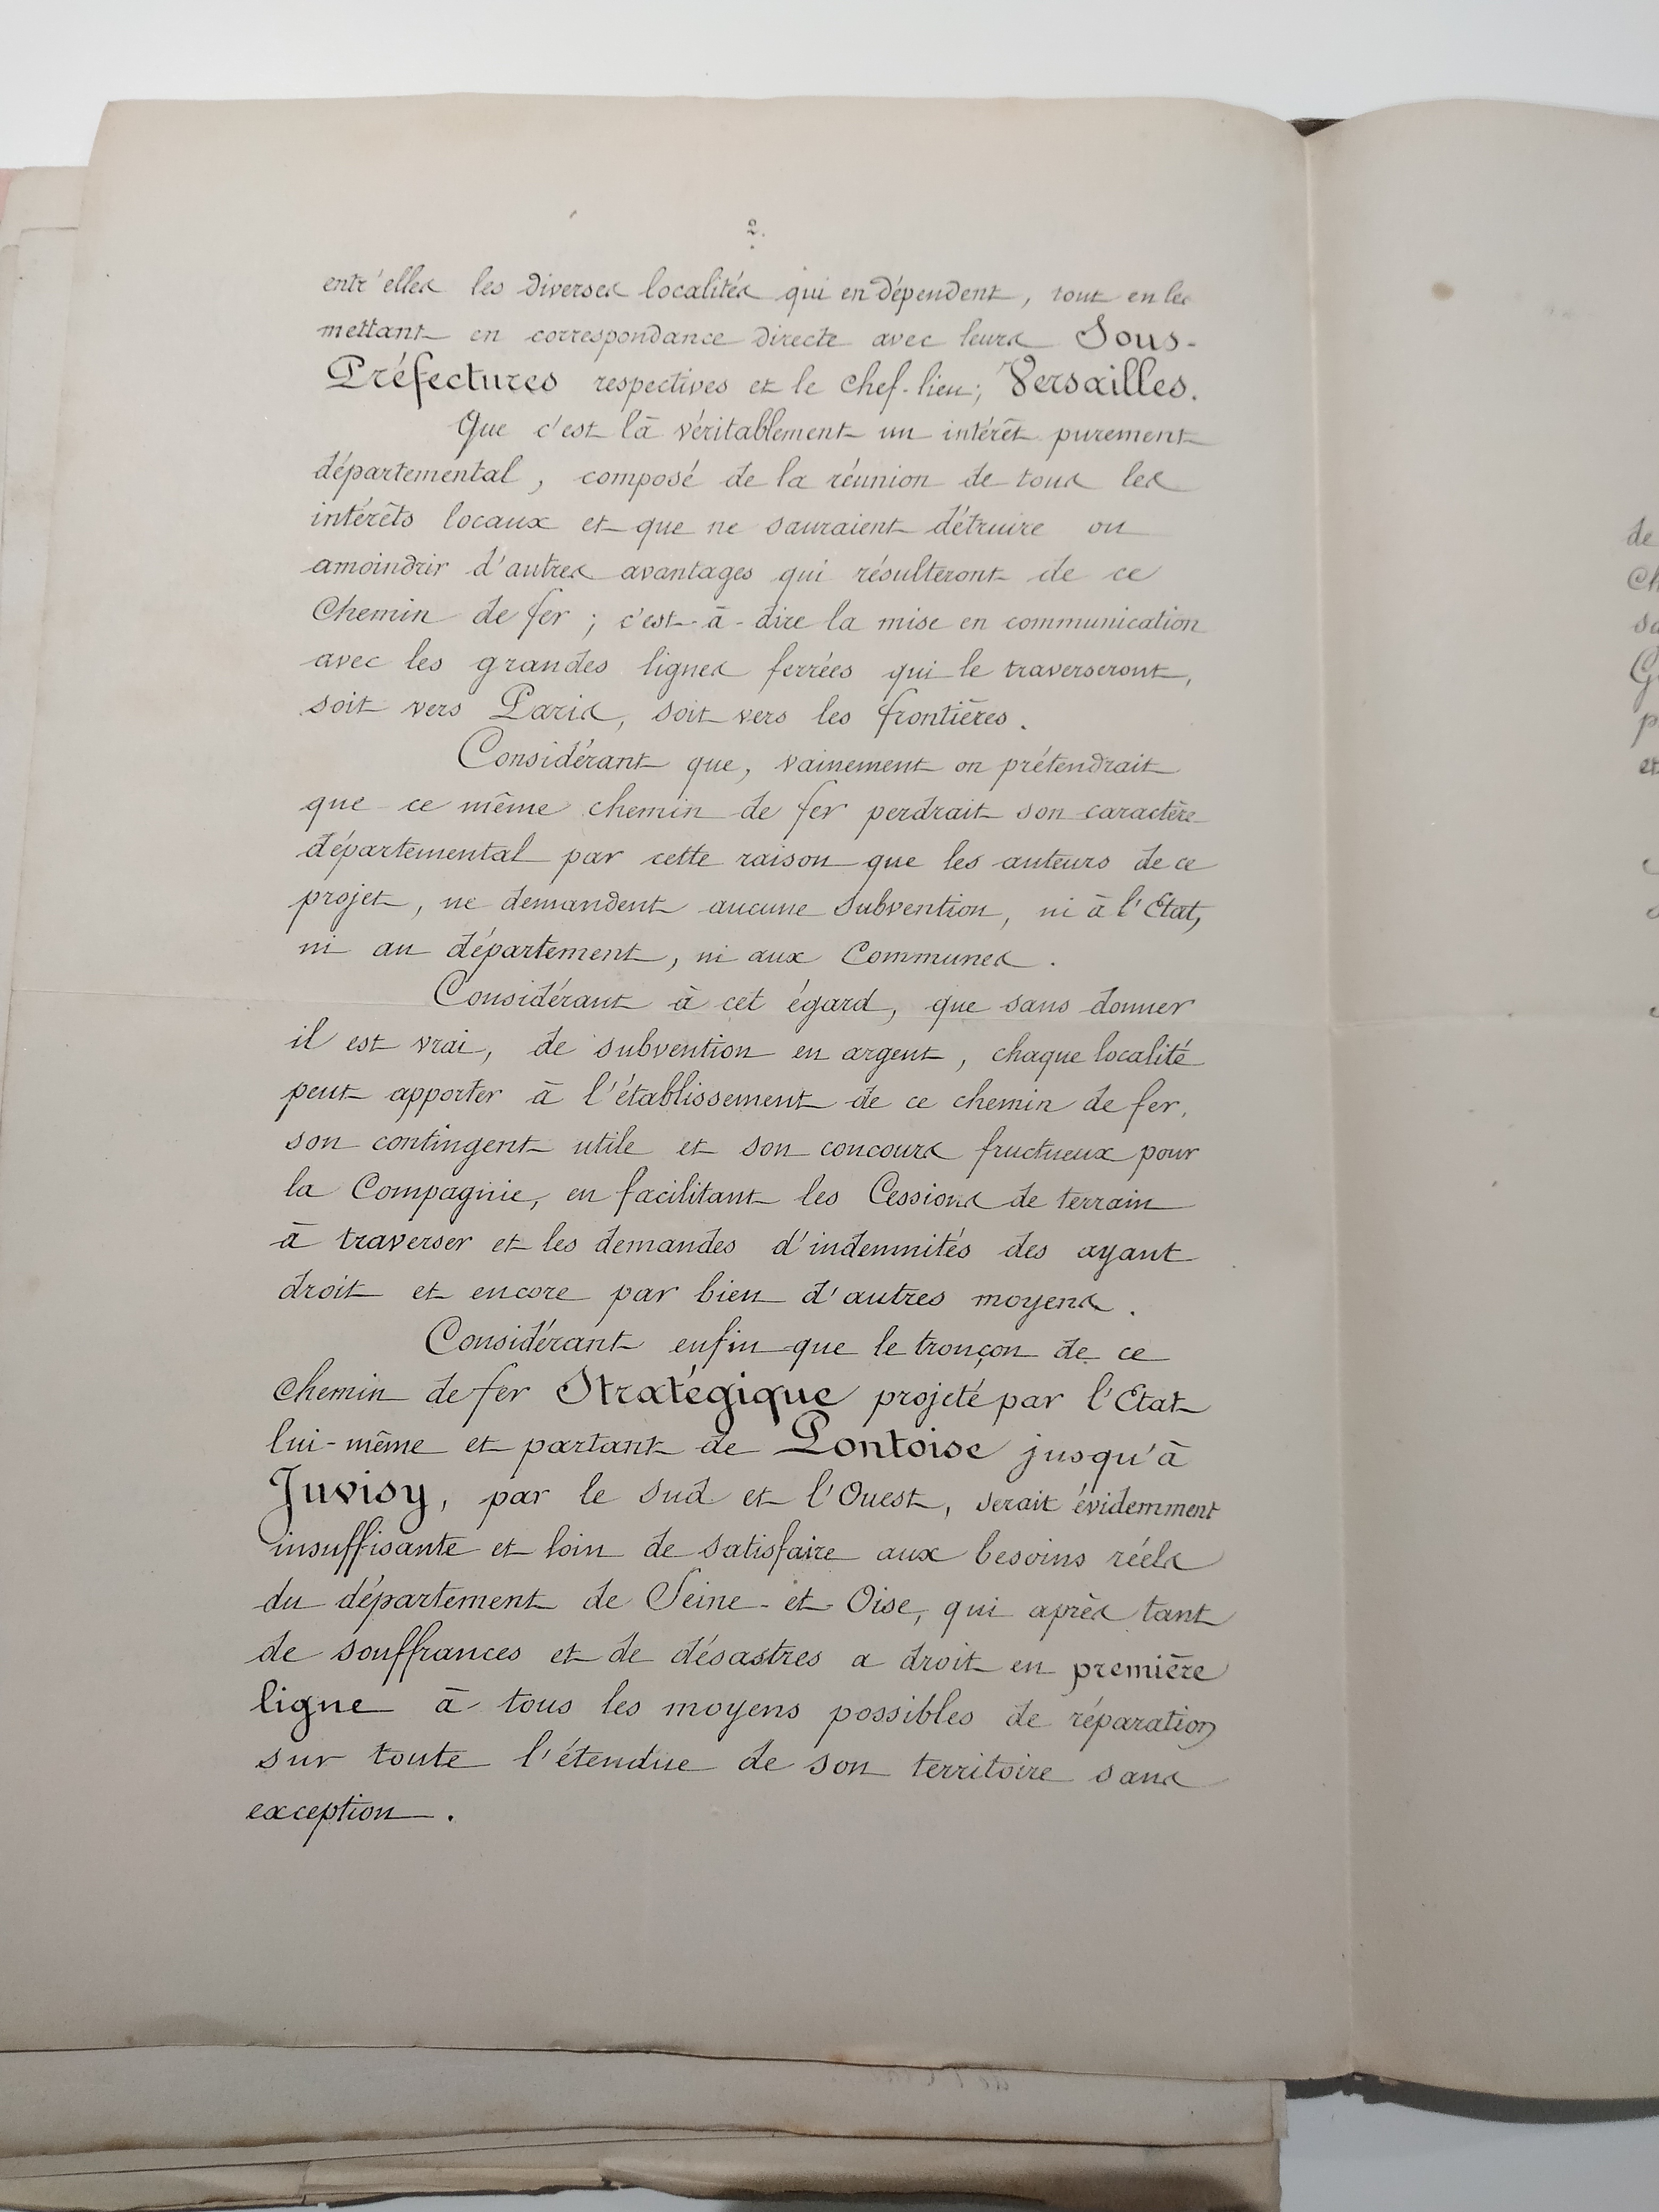 2.
entr'elles les diverses localités qui en dépendent, tout en les
mettant en correspondance directe avec leurs Sous-
Préfectures respectives et le chef-lieu; Versailles.
Que c'est là véritablement un intérêt purement
départemental, composé de la réunion de tous les
intérêts locaux et que ne sauraient détruire ou
amoindrir d'autres avantages qui résulteront de ce
Chemin de fer; c'est-à-dire la mise en communication
avec les grandes lignes ferrées qui le traverseront,
soit vers Paris, soit vers les frontières.
Considérant que, vainement on prétendrait
que ce même chemin de fer perdrait son caractère
départemental par cette raison que les auteurs de ce
projet, ne demandent aucune subvention, ni à l'Etat,
ni au département, ni aux Communes.
Considérant à cet égard, que sans donner
il est vrai, de subvention en argent, chaque localité
peut apporter à l'établissement de ce chemin de fer,
son contingent utile et son concours fructueux pour
la Compagnie, en facilitant les Cessions de terrain
à traverser et les demandes d'indemnités des ayant
droit et encore par bien d'autres moyens.
Considérant enfin que le tronçon de ce
chemin de fer Stratégique projeté par l'Etat
lui-même et partant de Pontoise jusqu'à
Juvisy, par le Sud et l'Ouest, serait évidemment
insuffisante et loin de satisfaire aux besoins réels
du département de Seine-et-Oise, qui après tant
de souffrances et de désastres a droit en première
ligne à tous les moyens possibles de réparation
sur toute l'étendue de son territoire sans
exception.
de